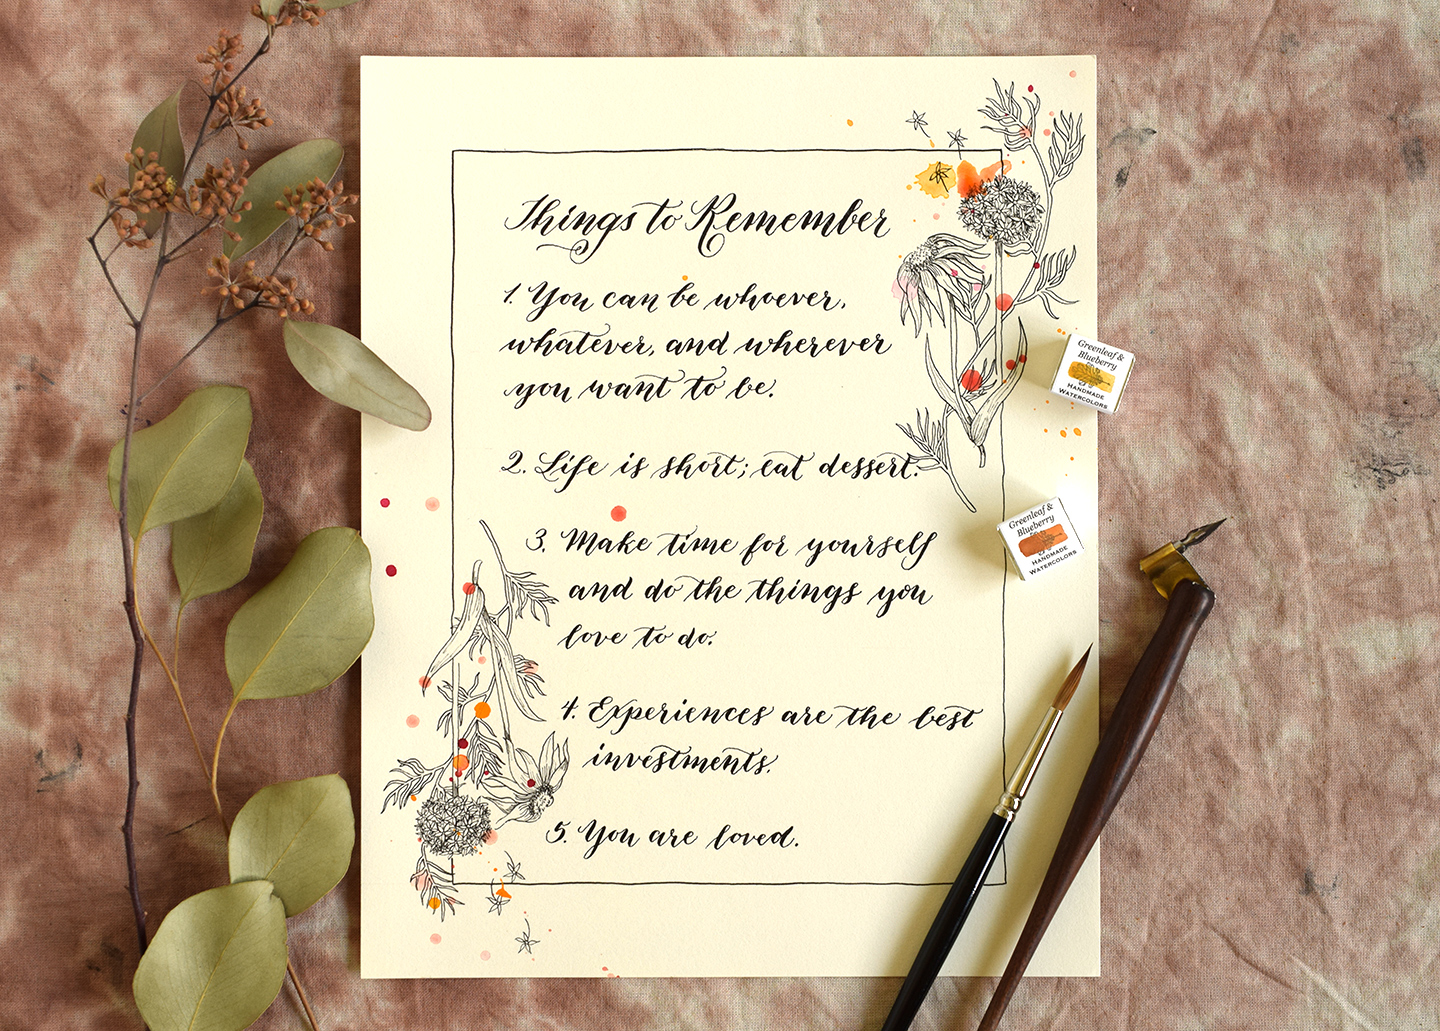 Things to Remember
1. You can be whoever,
whatever, and wherever
you want to be.
2. Life is short; eat dessert.
3. Make time for yourself
and do the things you
love to do.
4. Experiences are the best
investments.
5. You are loved.
Greenleaf &
Blueberry
HANDMADE
WATERCOLORS
Greenleaf &
Blueberry
HANDMADE
WATERCOLORS